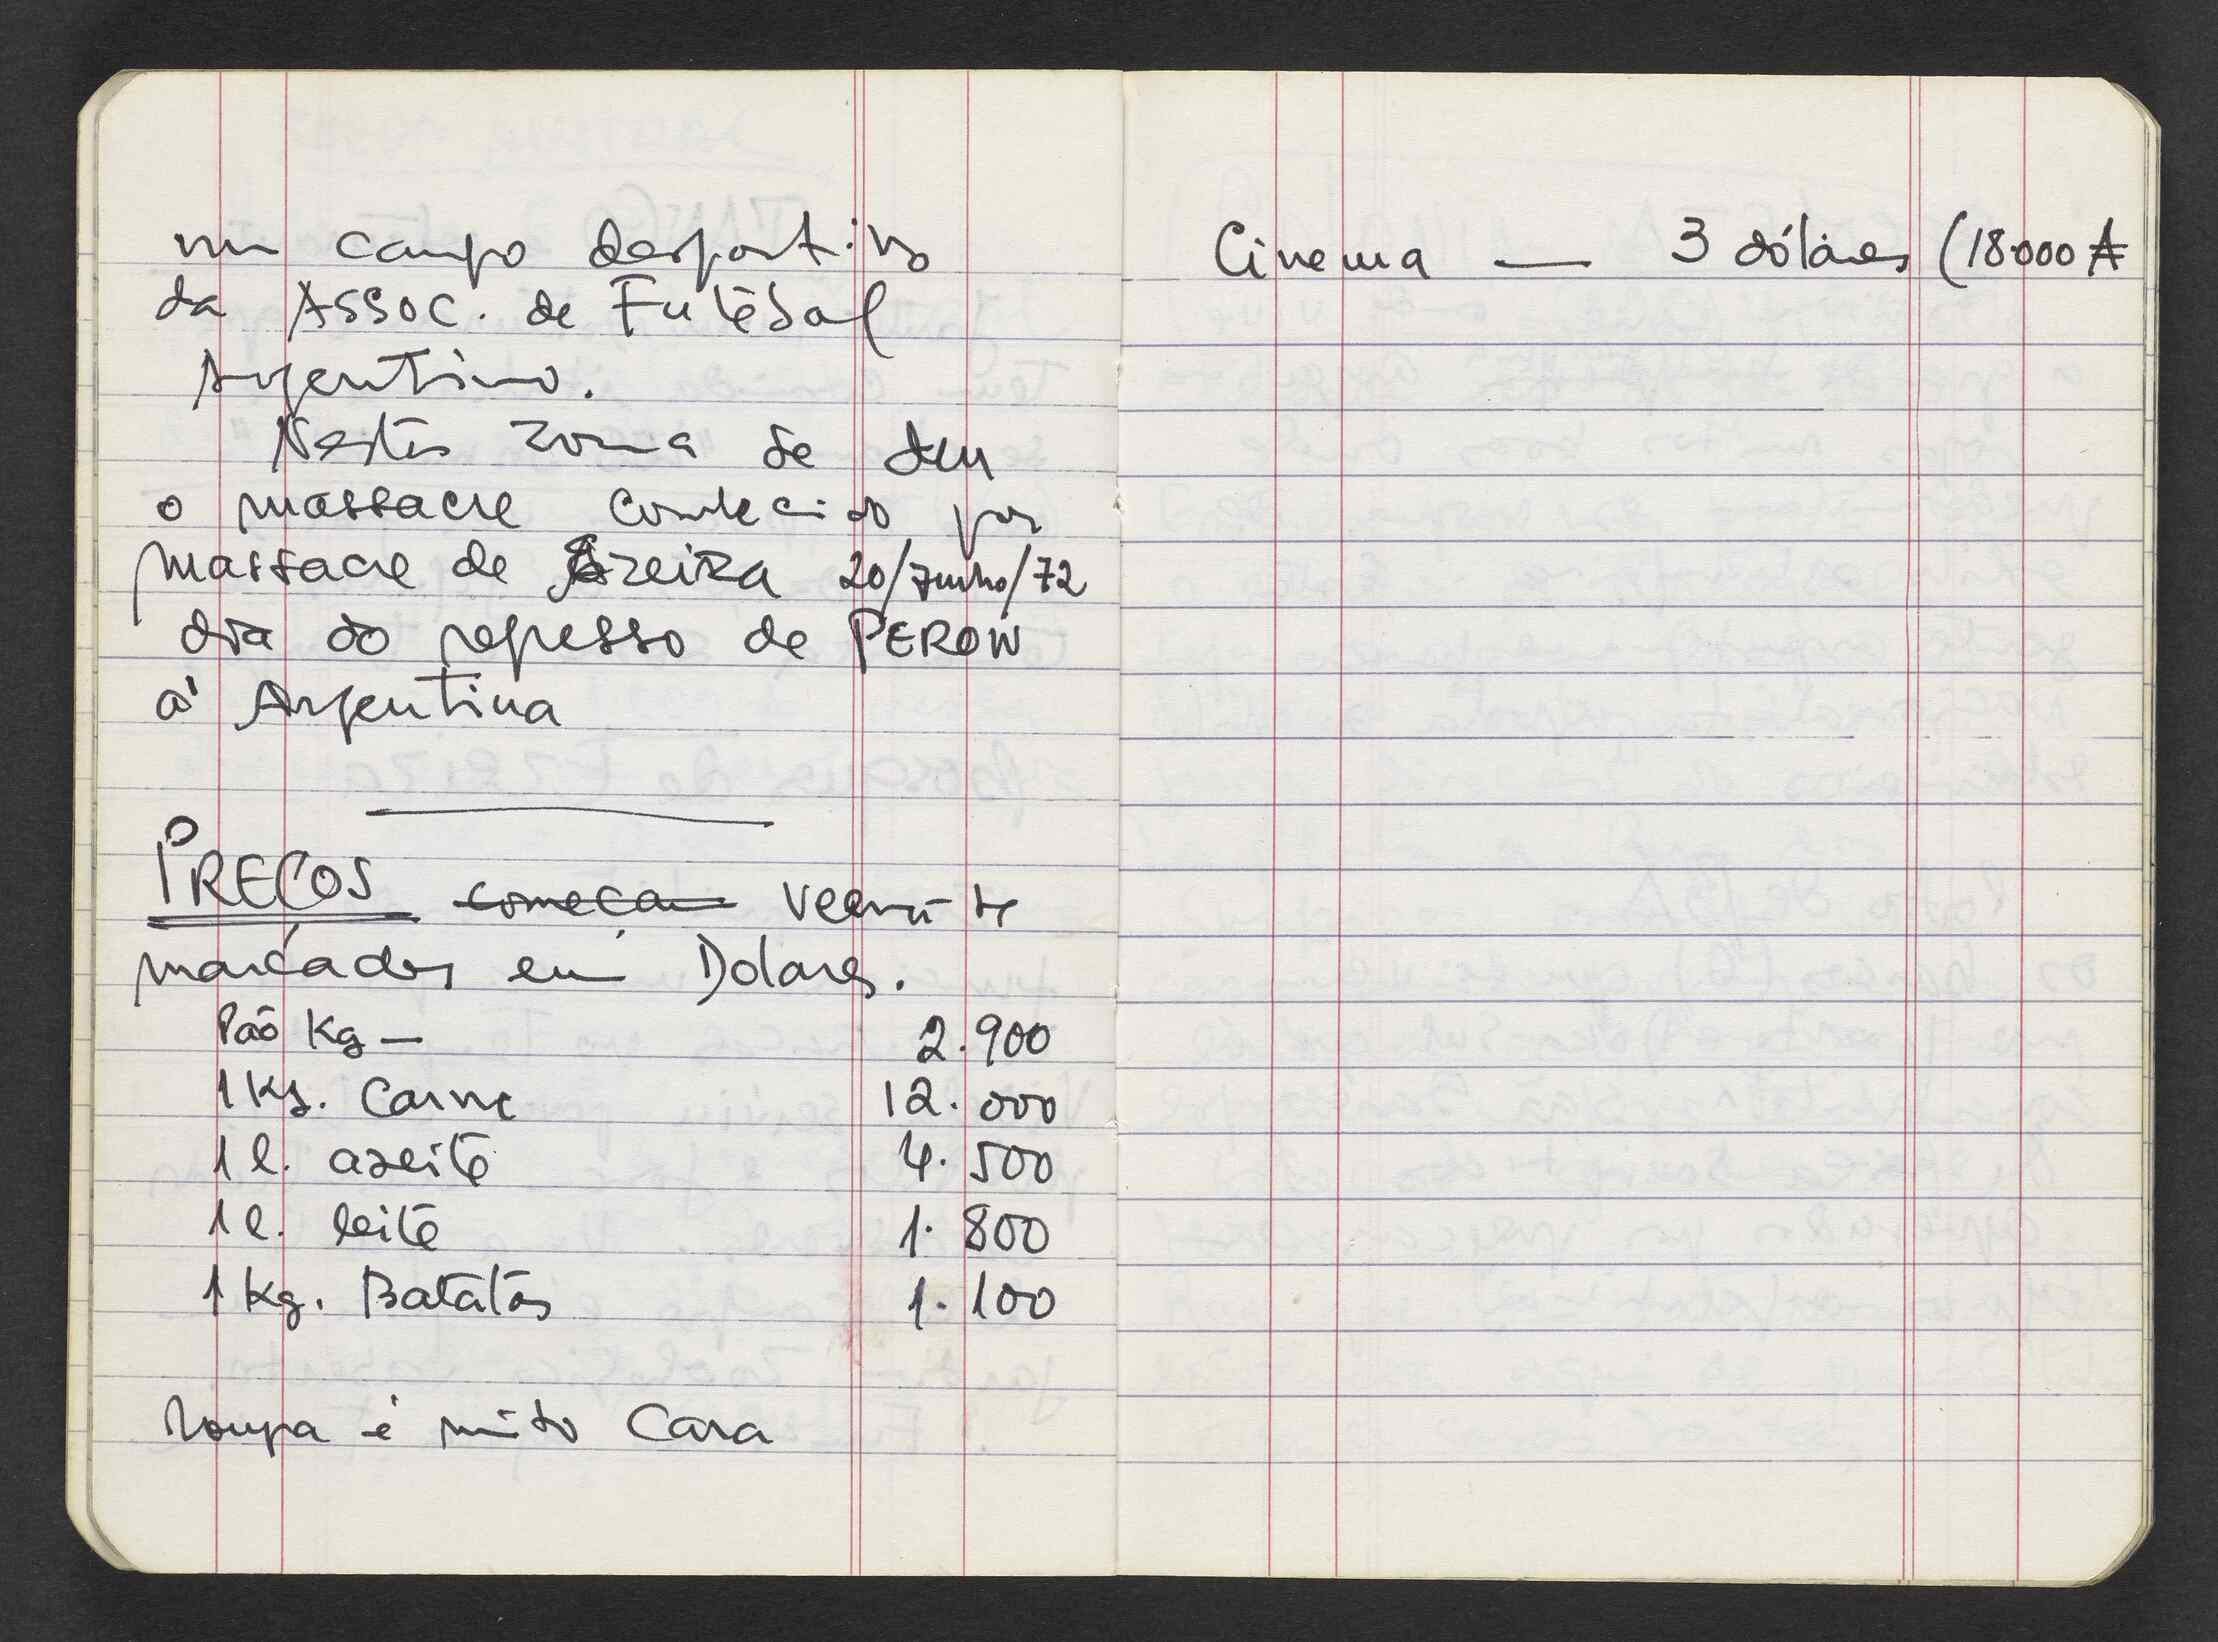 num campo desportivo
da Assoc. de Futebol
Argentino.
Nesta zona se deu
o massacre conhecido por
massacre de Ezeiza 20/Junho/72
dia do regresso de PERON
à Argentina
PREÇOS começam
marcados em Dolares.
Pão Kg — 2.900
1 Kg. Carne 12.000
1 l. azeite 4.500
1 l. leite 1.800
1 kg. Batatas 1.100
Roupa é muito Cara
Cinema — 3 dólares (18000 ₳